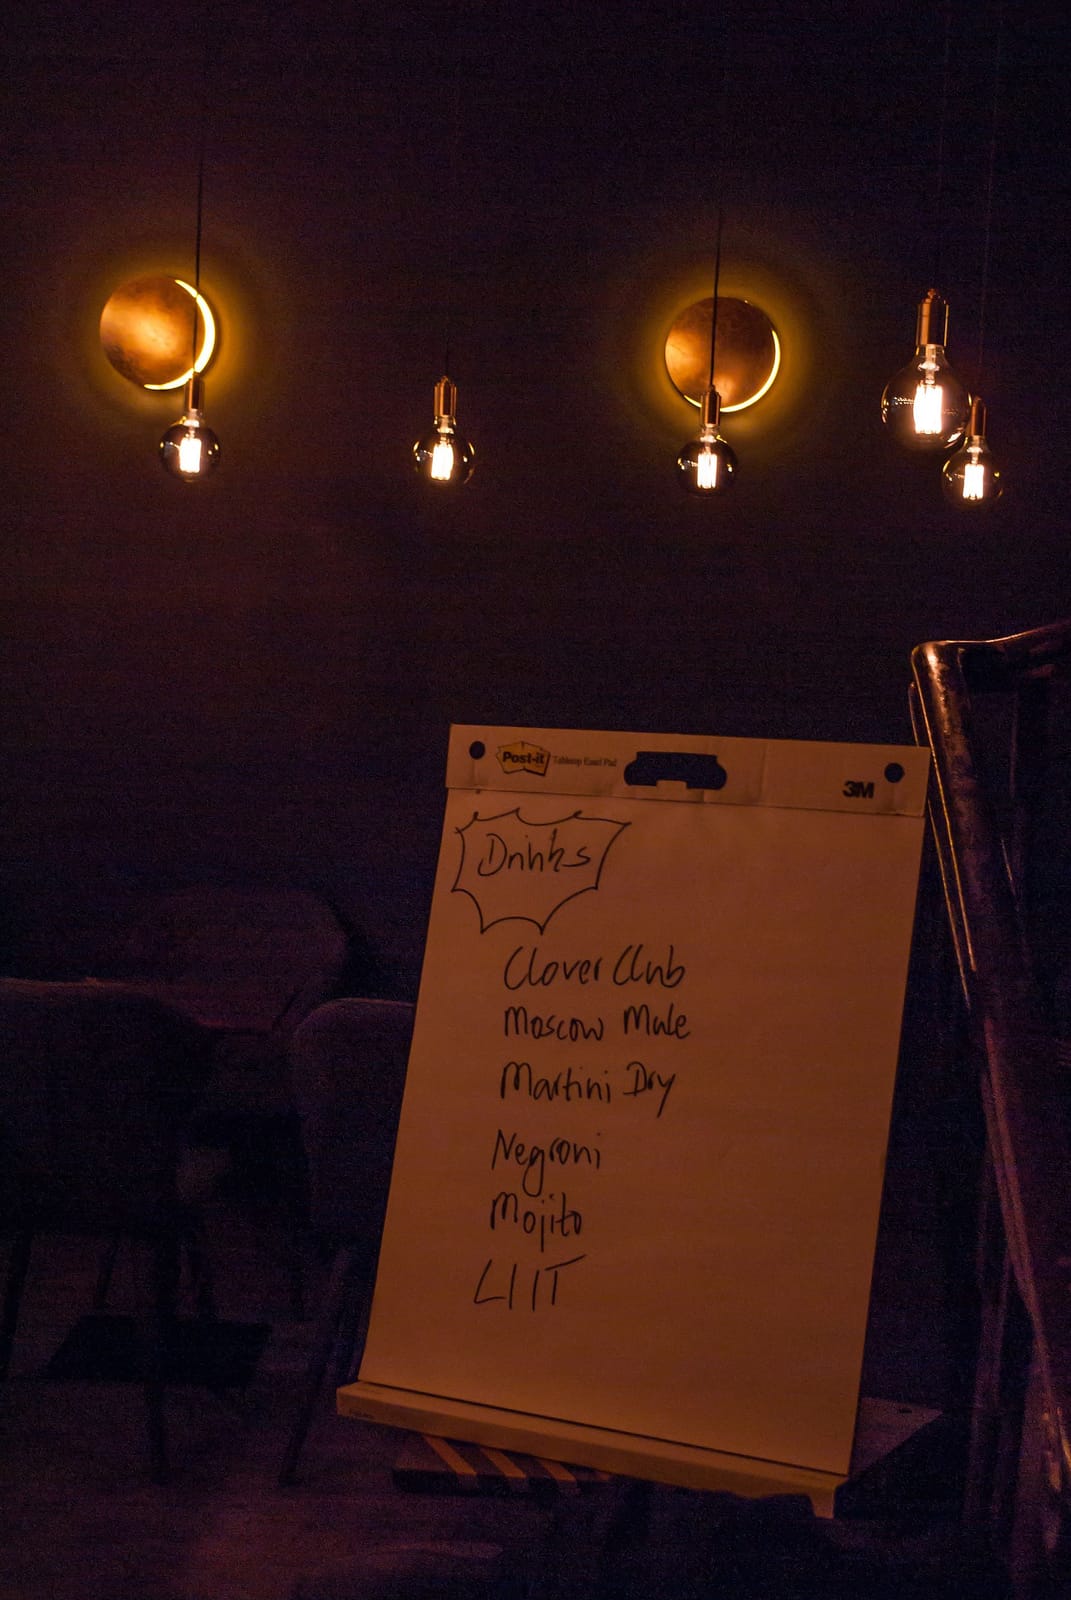 Post-it Tabletop Easel Pad
3M
Drinks
Clover Club
Moscow Mule
Martini Dry
Negroni
Mojito
LIIT